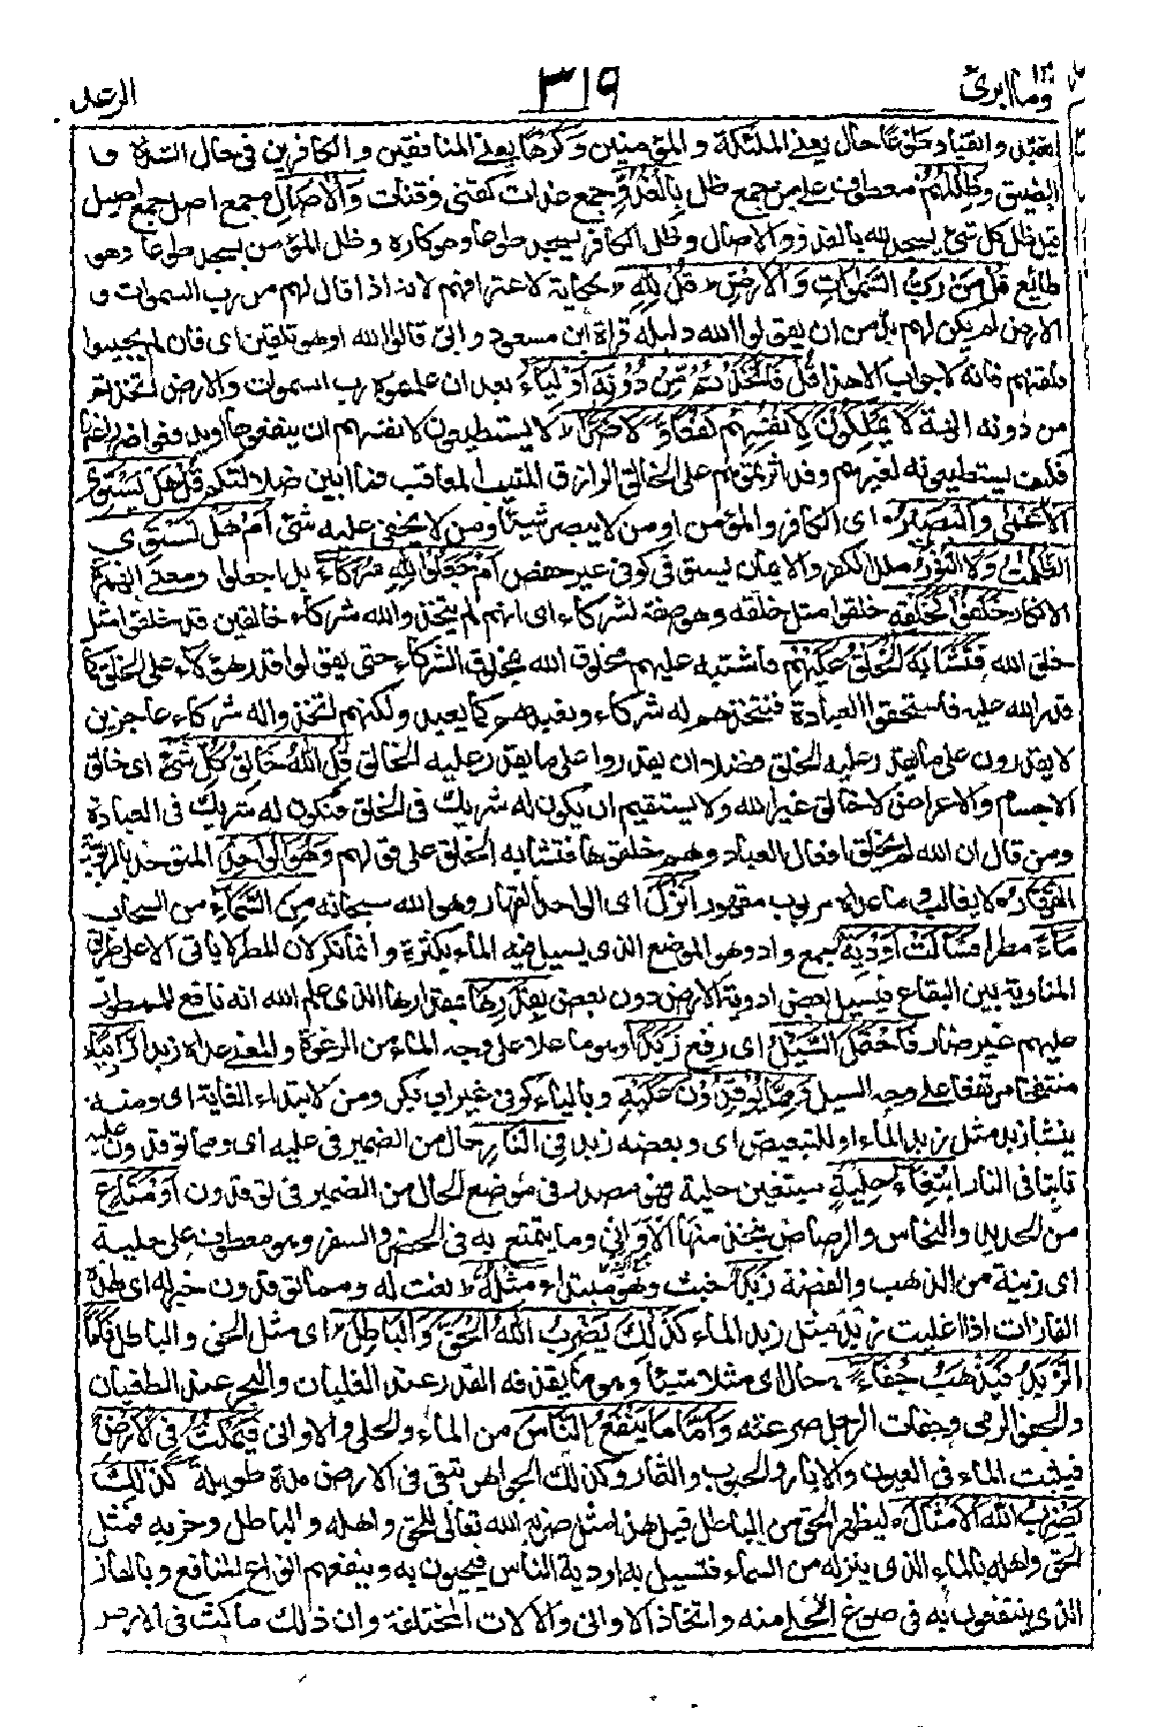 وما ابرئ
٣١٩
الرعد
تعبد وانقياد طَوْعًا حال يعني الملئكة والمؤمنين وَّكَرْهًا يعني المنافقين والكافرين في حال الشدة و
الضيق وَّظِلٰلُهُمْ معطوف على من جمع ظل بِالْغُدُوِّ جمع غداة كقنى وقنات وَالْاٰصَالِ جمع اصل جمع اصيل
قيل ظل كل شئ يسجد لله بالغدو والاصال وظل الكافر يسجد طوعا وهو كاره وظل المؤمن يسجد طوعا وهو
طائع قُلْ مَنْ رَبُّ السَّمٰوٰتِ وَالْاَرْضِ قُلِ اللهُ حكاية لاعترافهم لانه اذا قال لهم من رب السموات و
الارض لم يكن لهم بد من ان يقولوا الله دليله قراءة ابن مسعود وابى قالوا الله او هو تلقين اى فان لم يجيبوا
فلقنهم فانه لا جواب الا هذا قُلْ اَفَاتَّخَذْتُمْ مِّنْ دُوْنِهٖٓ اَوْلِيَآءَ بعد ان علمتموه رب السموات والارض اتخذتم
من دونه الهة لَا يَمْلِكُوْنَ لِاَنْفُسِهِمْ نَفْعًا وَّلَا ضَرًّا لا يستطيعون لانفسهم ان ينفعوها او يدفعوا ضررا عنها
فكيف يستطيعونه لغيرهم وقد اثرتموهم على الخالق الرازق المثيب المعاقب فما ابين ضلالتكم قُلْ هَلْ يَسْتَوِى
الْاَعْمٰى وَالْبَصِيْرُ اى الكافر والمؤمن او من لا يبصر شيئا ومن لا يخفى عليه شئ اَمْ هَلْ تَسْتَوِى
الظُّلُمٰتُ وَلَا النُّوْرُ ملل الكفر والايمان يستوى كوفى غير حفص اَمْ جَعَلُوْا لِلّٰهِ شُرَكَآءَ بل اجعلوا ومعنى الهمزة
الانكار خَلَقُوْا كَخَلْقِهٖ خلقوا مثل خلقه وهو صفة لشركاء اى انهم لم يتخذوا لله شركاء خالقين قد خلقوا مثل
خلق الله فَتَشَابَهَ الْخَلْقُ عَلَيْهِمْ فاشتبه عليهم مخلوق الله بمخلوق الشركاء حتى يقولوا قدر هؤلاء على الخلق كما
قدر الله عليه فاستحقوا العبادة فنتخذهم له شركاء ونعبدهم كما يعبد ولكنهم اتخذوا له شركاء عاجزين
لا يقدرون على ما يقدر عليه الخلق فضلا ان يقدروا على ما يقدر عليه الخالق قُلِ اللهُ خَالِقُ كُلِّ شَىْءٍ اى خالق
الاجسام والاعراض لا خالق غير الله ولا يستقيم ان يكون له شريك فى الخلق فيكون له شريك فى العبادة
ومن قال ان الله لم يخلق افعال العباد وهم خلقوها فتشابه الخلق على قولهم وَهُوَ الْوَاحِدُ المتوحد بالربوبية
الْقَهَّارُ لا يغالب وما عداه مربوب مقهور اَنْزَلَ اى الواحد القهار وهو الله سبحانه مِنَ السَّمَآءِ من السحاب
مَآءً مطرا فَسَالَتْ اَوْدِيَةٌ جمع واد وهو الموضع الذى يسيل فيه الماء بكثرة وانما نكر لان المطر لا ياتى الا على طريق
المناوبة بين البقاع فيسيل بعض اودية الارض دون بعض بِقَدَرِهَا بمقدارها الذى علم الله انه نافع للممطور
عليهم غير ضار فَاحْتَمَلَ السَّيْلُ اى رفع زَبَدًا هو ما علا على وجه الماء من الرغوة والمعنى علاه زبد رَّابِيًا
منتفخا مرتفعا على وجه السيل وَمِمَّا يُوْقِدُوْنَ عَلَيْهِ وبالياء كوفى غير ابى بكر ومن لابتداء الغاية اى ومنه
ينشأ زبد مثل زبد الماء او للتبعيض اى وبعضه زبد فِى النَّارِ حال من الضمير فى عليه اى ومما توقدون عليه
ثابتا فى النار ابْتِغَآءَ حِلْيَةٍ مبتغين حلية فهو مصدر فى موضع الحال من الضمير فى توقدون اَوْ مَتَاعٍ
من الحديد والنحاس والرصاص يتخذ منها الاوانى وما يتمتع به فى الحضر والسفر وهو معطوف على حلية
اى زينة من الذهب والفضة زَبَدٌ خبث وهو مبتداء مِّثْلُهٗ نعت له ومما توقدون خبر له اى لهذه
الفلزات اذا اغليت زبد مثل زبد الماء كَذٰلِكَ يَضْرِبُ اللهُ الْحَقَّ وَالْبَاطِلَ اى مثل الحق والباطل فَاَمَّا
الزَّبَدُ فَيَذْهَبُ جُفَآءً حال اى متلاشيا وهو ما يقذفه القدر عند الغليان والبحر عند الطغيان
والجفء الرمى وجفات الرجل صرعته وَاَمَّا مَا يَنْفَعُ النَّاسَ من الماء والحلى والاوانى فَيَمْكُثُ فِى الْاَرْضِ
فيثبت الماء فى العيون والابار والحبوب والثمار وكذلك الجواهر تبقى فى الارض مدة طويلة كَذٰلِكَ
يَضْرِبُ اللهُ الْاَمْثَالَ ليظهر الحق من الباطل قيل هذا مثل ضربه الله تعالى للحق واهله والباطل وحزبه فمثل
الحق واهله بالماء الذى ينزله من السماء فتسيل به اودية الناس فيحيون به وينفعهم انواع المنافع وبالفلز
الذى ينتفعون به فى صوغ الحلى منه واتخاذ الاوانى والالات المختلفة وان ذلك ماكث فى الارض